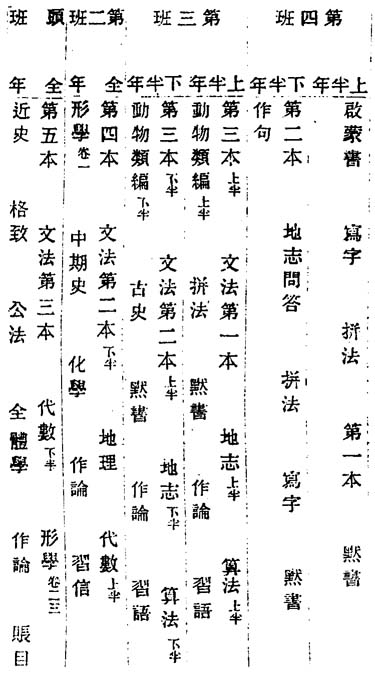 第四班
上半年
啟蒙書 寫字 拼法 第一本 默書
下半年
第二本 地志問答 拼法 寫字 默書
作句
第三班
上半年
第三本上半 文法第一本 地志上半 算法上半
動物類編上半 拼法 默書 作論 習語
下半年
第三本下半 文法第二本上半 地志下半 算法下半
動物類編下半 古史 默書 作論 習語
第二班
全年
第四本 文法第二本下半 地理 代數上半
形學卷一 中期史 化學 作論 習信
頭班
全年
第五本 文法第三本 代數下半 形學卷二三
近史 格致 公法 全體學 作論 賬目